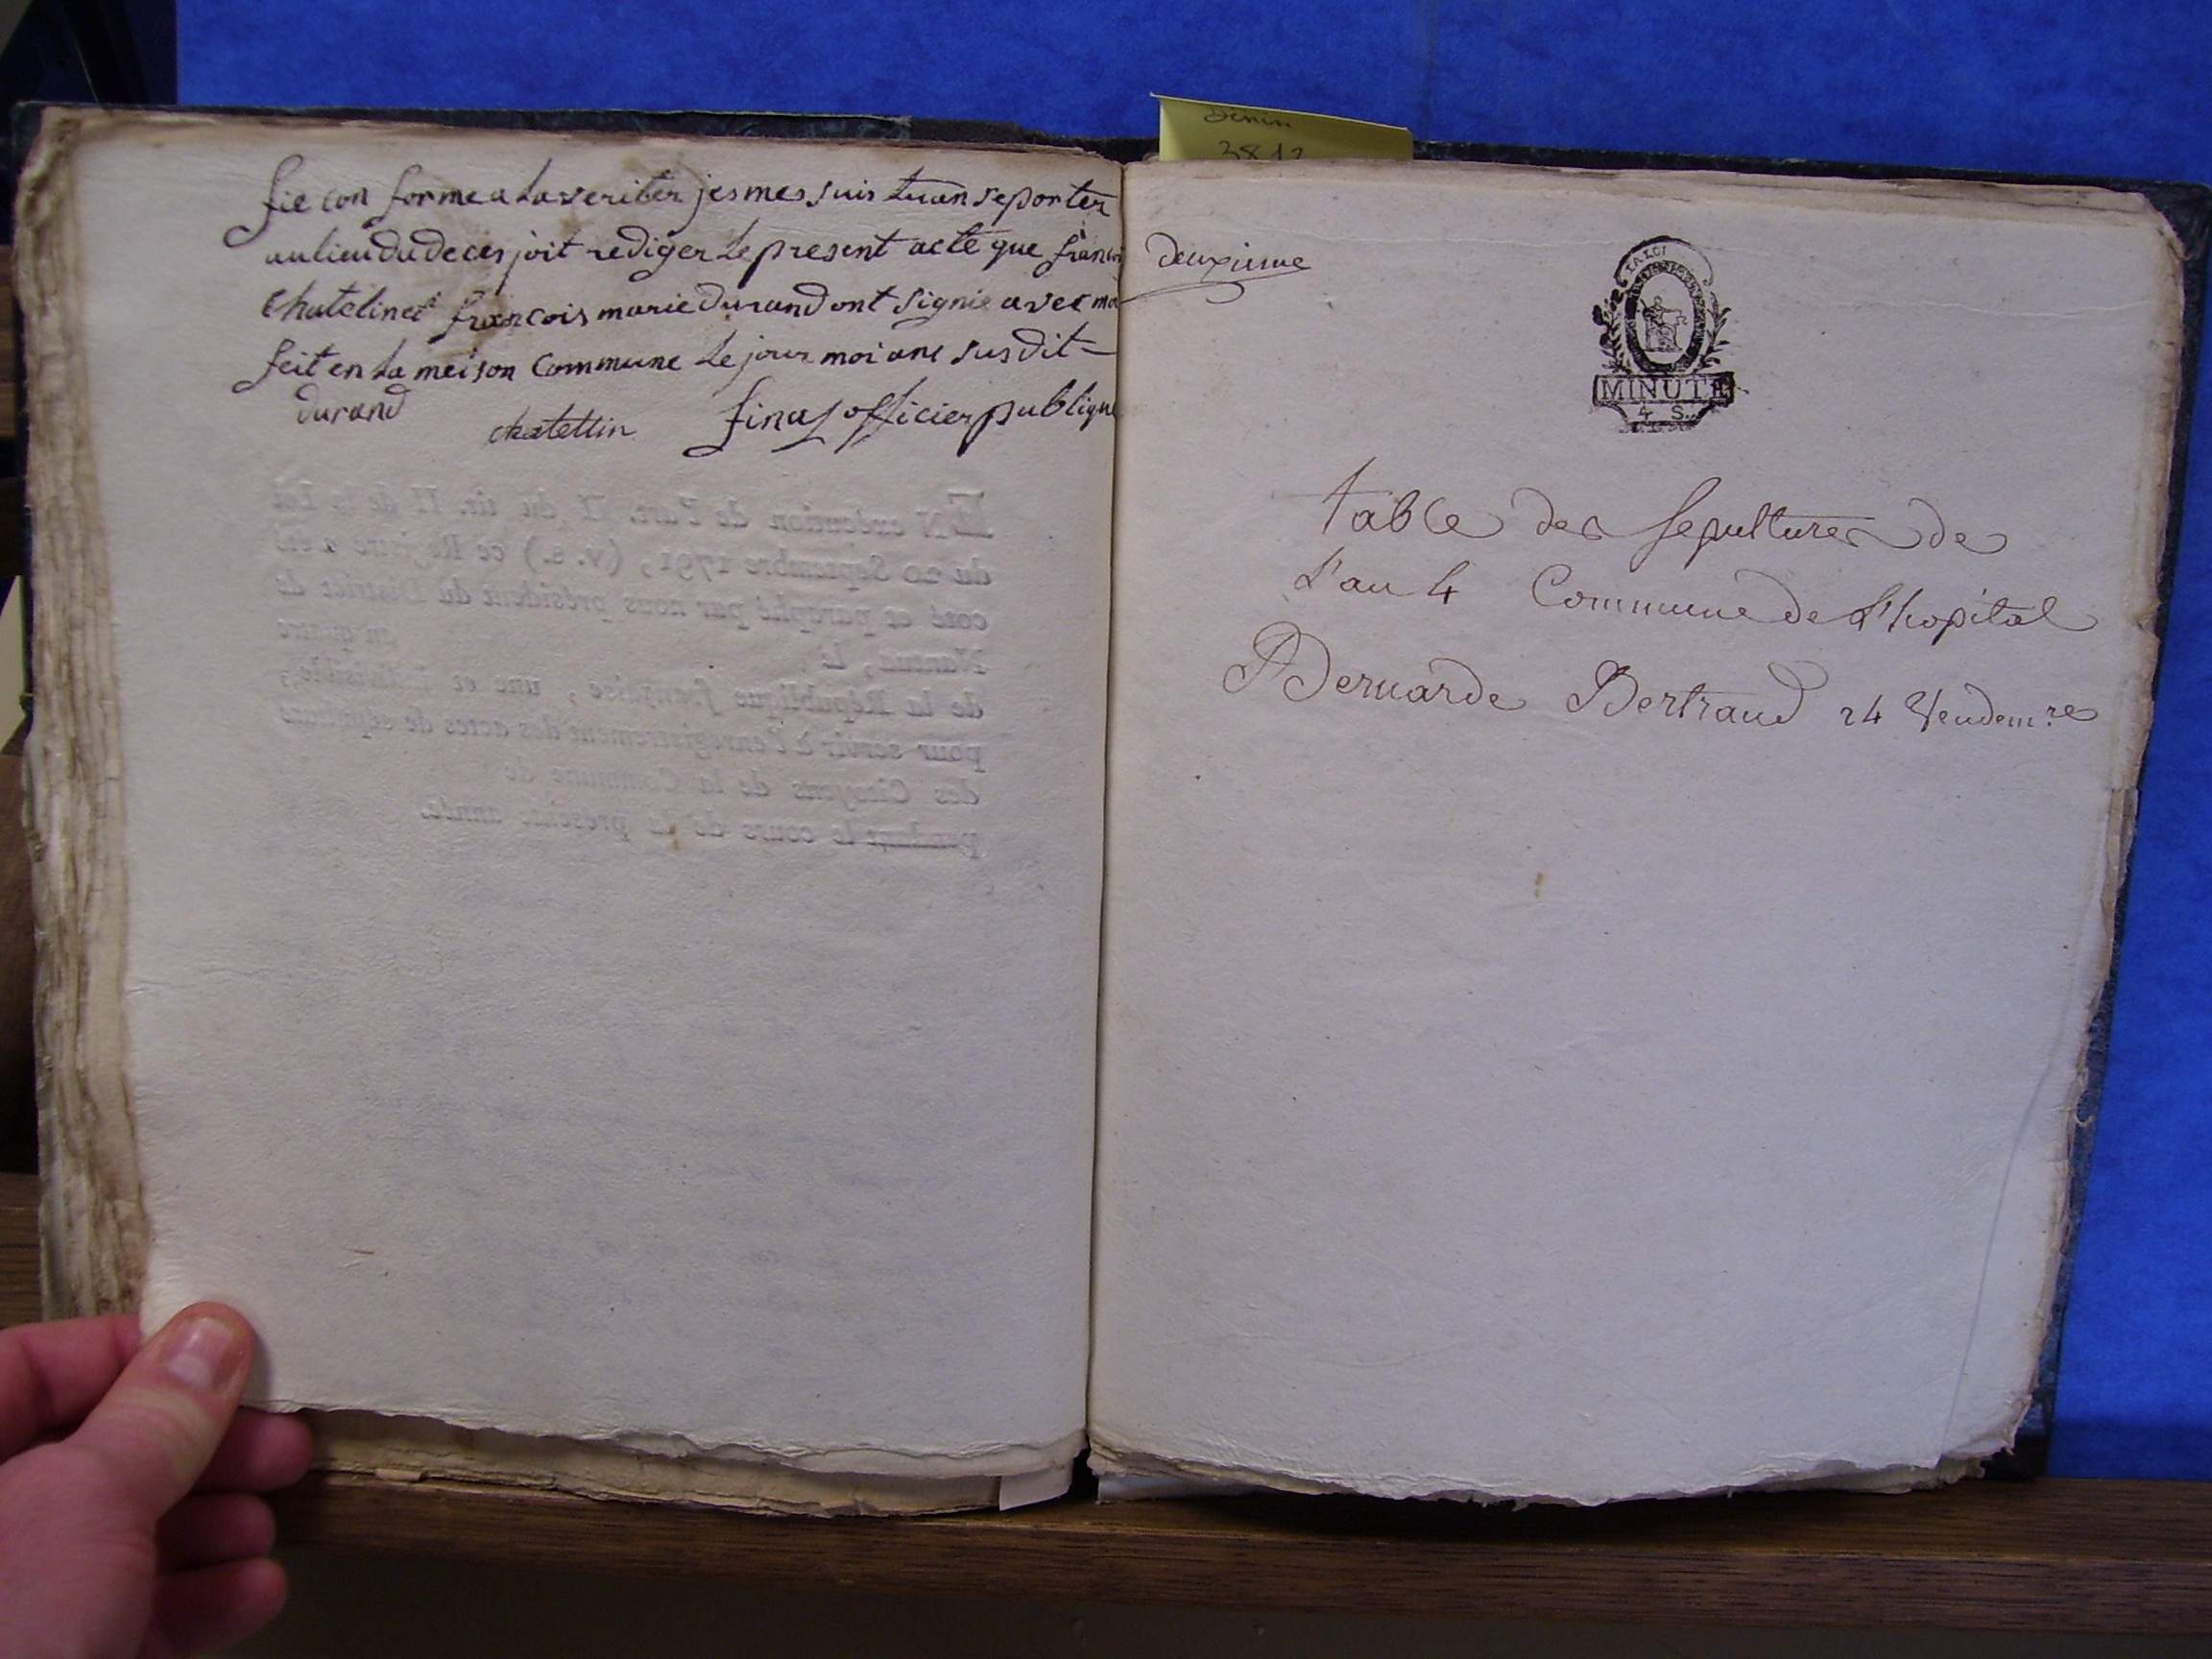 fie con forme a la veriter jes mes suis tuan reporter
au lieu du deces joit rediger le present acte que francoi
Chatelin et francois marie durand ont signie avec moi
feit en la meison Commune le jour moi ane susdit =
durand chatettin finas officier publique
EN exécution de l'art. II du tit. II de la Loi
du 20 Septembre 1791, (v. s.) ce Registre a été
coté et paraphé par nous président du District de
Nantua, le an quatre
de la République française, une et indivisible,
pour servir à l'enregistrement des actes de sépulture
des Citoyens de la Commune de
pendant le cours de la présente année.
3812
deuxieme
LA LOI
MINUTE
4 S.
table des sepultures de
L'an 4 Commune de L'hopital
Bernarde Bertrand 24 Vendem.re